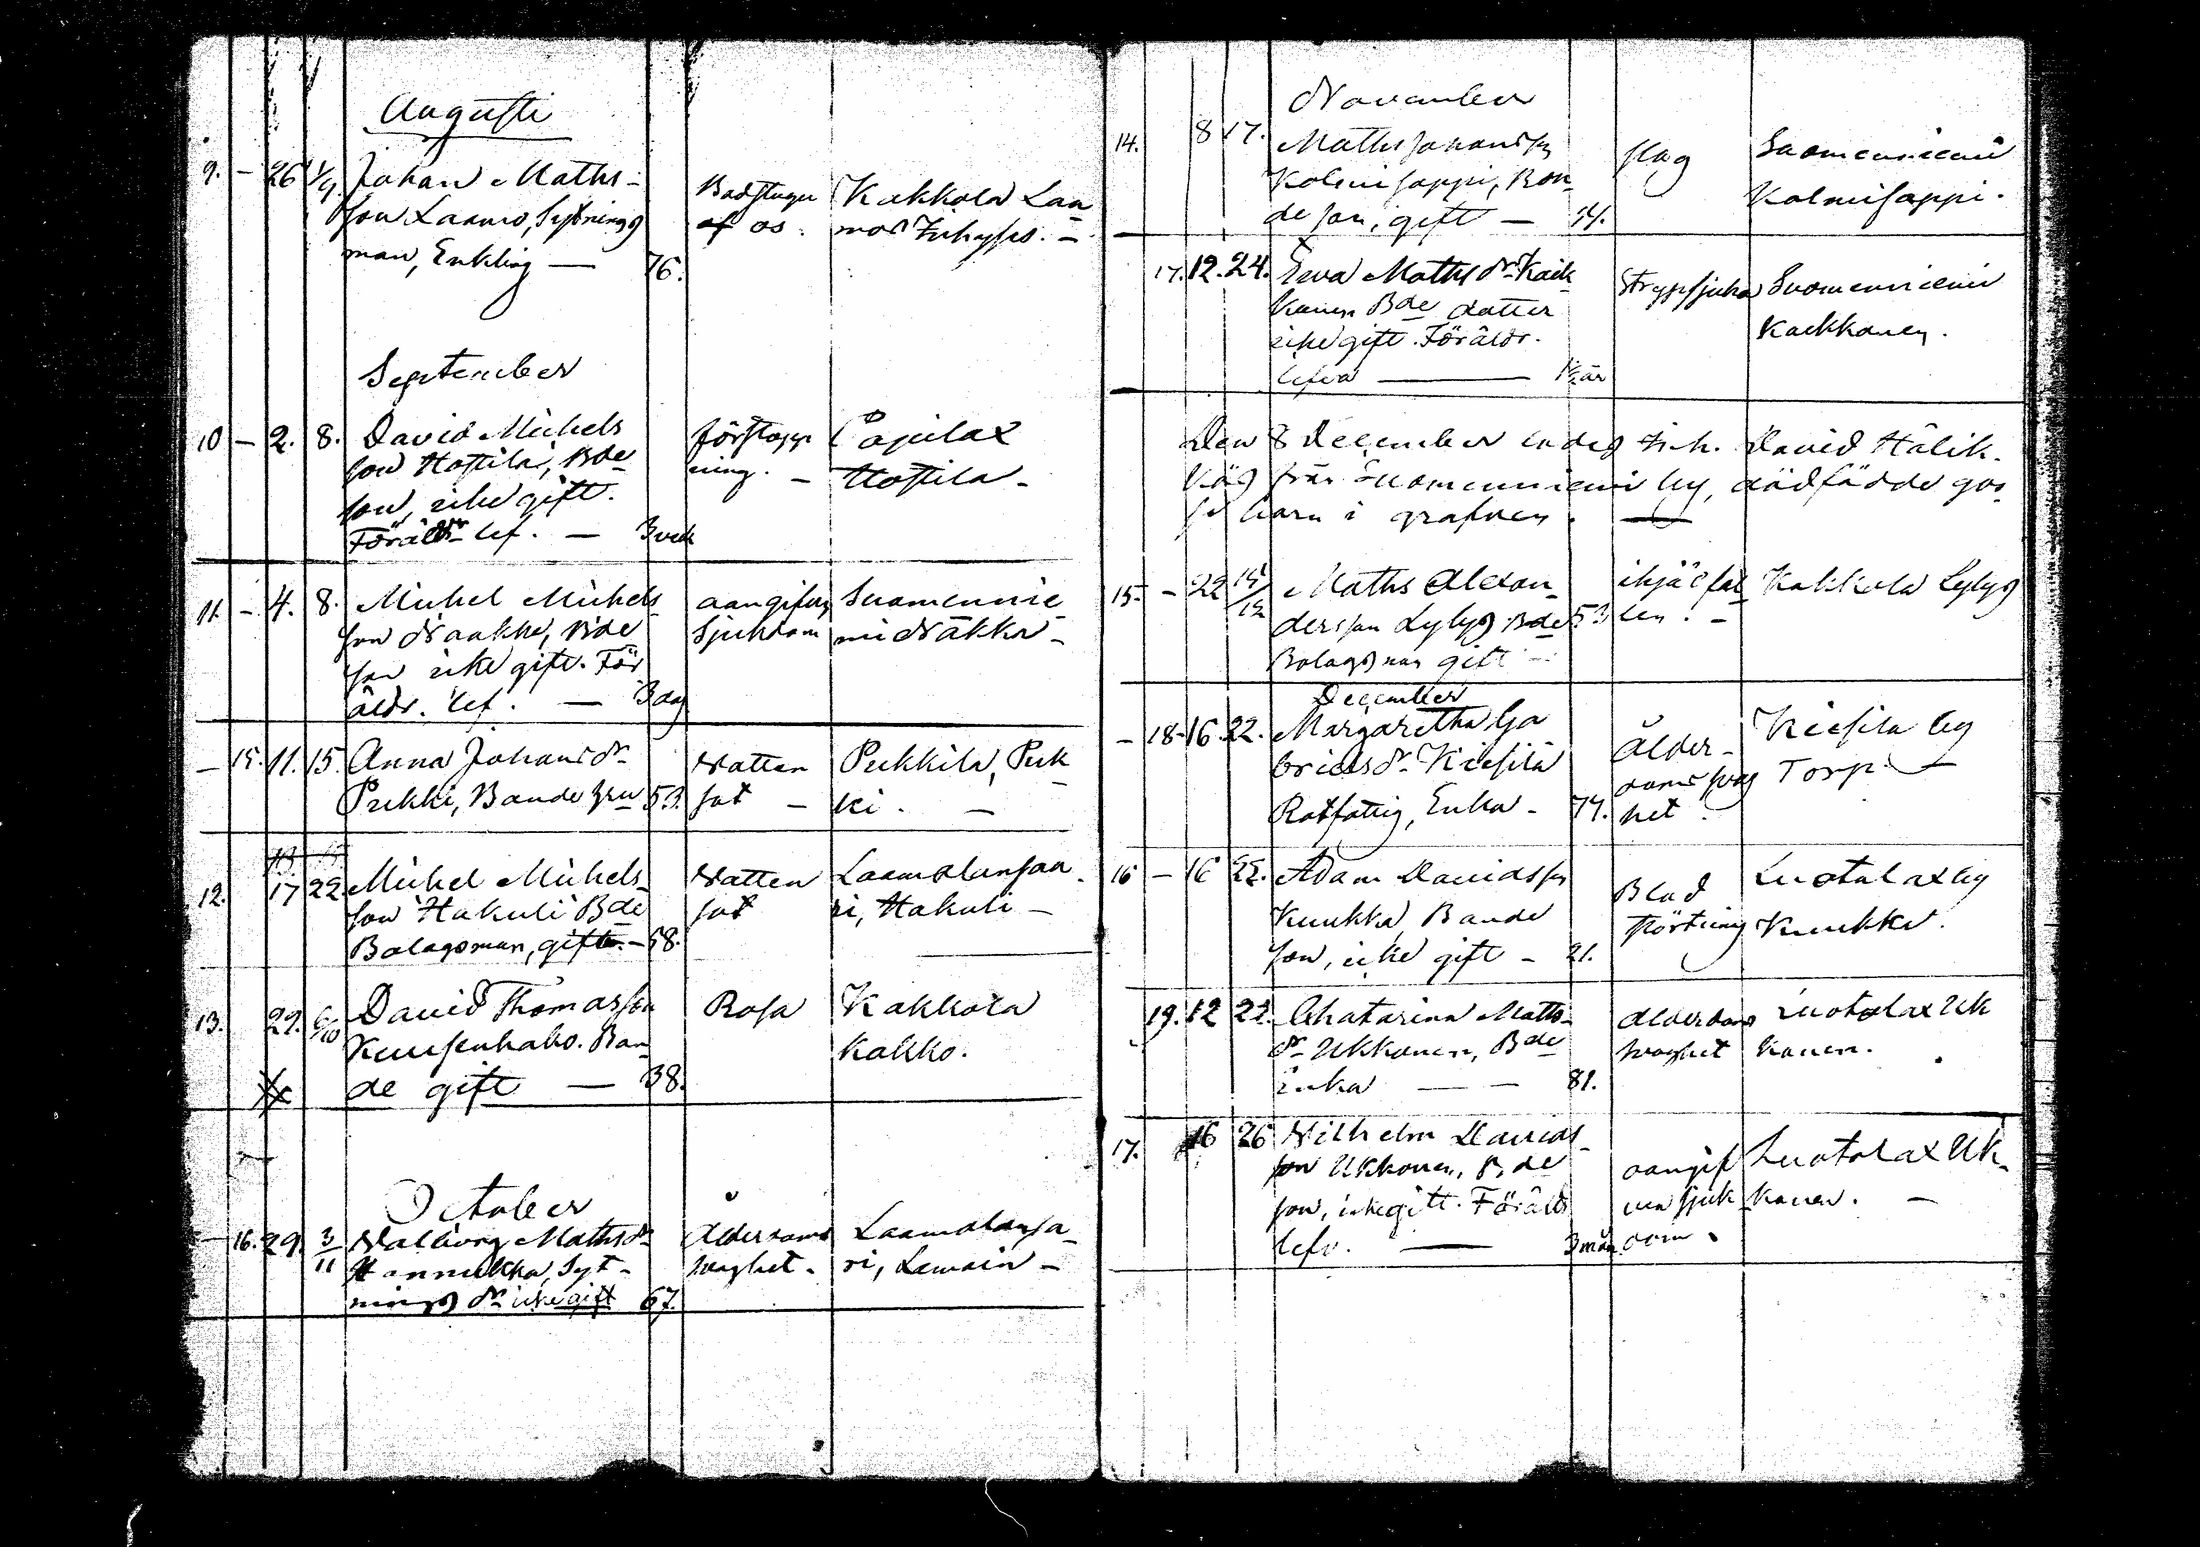 Augusti
9. – 26 1/9. Johan Maths-
son Laamo, Sytnings
man, Enkling — 76.
Badstugu
af os.
Kakkola Laa
mos Inhyses. –
September
10 – 2. 8. David Michels
son Hostila, Bde
son, icke gift.
Föräldr lef. — 3 vek
förstopp
ning. –
Capilax
Hostila –
11. – 4. 8. Michel Michels
son Naakka, Bde
son icke gift. För
äldr. lef. — 3 dag
oangifven
Sjukdom
Suomennie
mi Näkka –
– 15. 11. 15. Anna Johansdr
Pukki, Bonde hru 53.
Vatten
sot –
Pukkila, Puk
ki. –
12. 17 22 Michel Michels-
son Hakuli Bde
Bolagsman, gift. – 58.
Vatten
sot
Laamalansaa
ri, Hakuli –
13. 29. 6/10 David Thomasson
Kuusenhako. Bon
de gift — 38.
Rosa
Kakkola
Kakko.
October
16. 29. 3/11 Valborg Mathsdr
Hannukka, Syt-
nings dr icke gift 67.
Ålderdoms
svaghet.
Laamalansa-
ri, Lemoin –
November
14. 8 17. Maths Johansson
Kolmisoppi, Bon-
de son, gift –
slag
Suomenniemi
Kolmisoppi.
17. 12. 24. Ewa Maths dr Kaik
konen Bde dotter
icke gift. Föräldr.
lefva — 1½ år
Strypsjuka
Suomenniemi
Kaikkonen.
Den 8 December lades Inh. David Hälik-
käs från Suomenniemi by, dödfödde gos
se barn i grafven. —
15. – 22 15/12 Maths Alexan-
dersson Lylys Bde 53
Bolagsman gift –
ihjälfal
len. –
Kakkola Lylys
December
– 18. 16. 22. Margaretha Ga
briels dr Kiesilä
Rotfattig, Enka – 74.
Ålder-
doms svag
het.
Kiesila by
Torp. —
16 – 16 22. Adam Davidsson
Kuukka, Bonde
son, icke gift – 21.
Blod
störtning
Luotolax by
Kuukka.
19. 12 22. Chatarina Maths-
dr Ukkonen, Bde
enka — – 81.
Ålderdoms
svaghet
Luotolax Uk
konen.
17. 16 26 Vilhelm Davids-
son Ukkonen, Bde
son, icke gift. Föräldr
lefv. — 3 mån
oangif
ven sjuk
dom.
Luotolax Uk-
konen. –